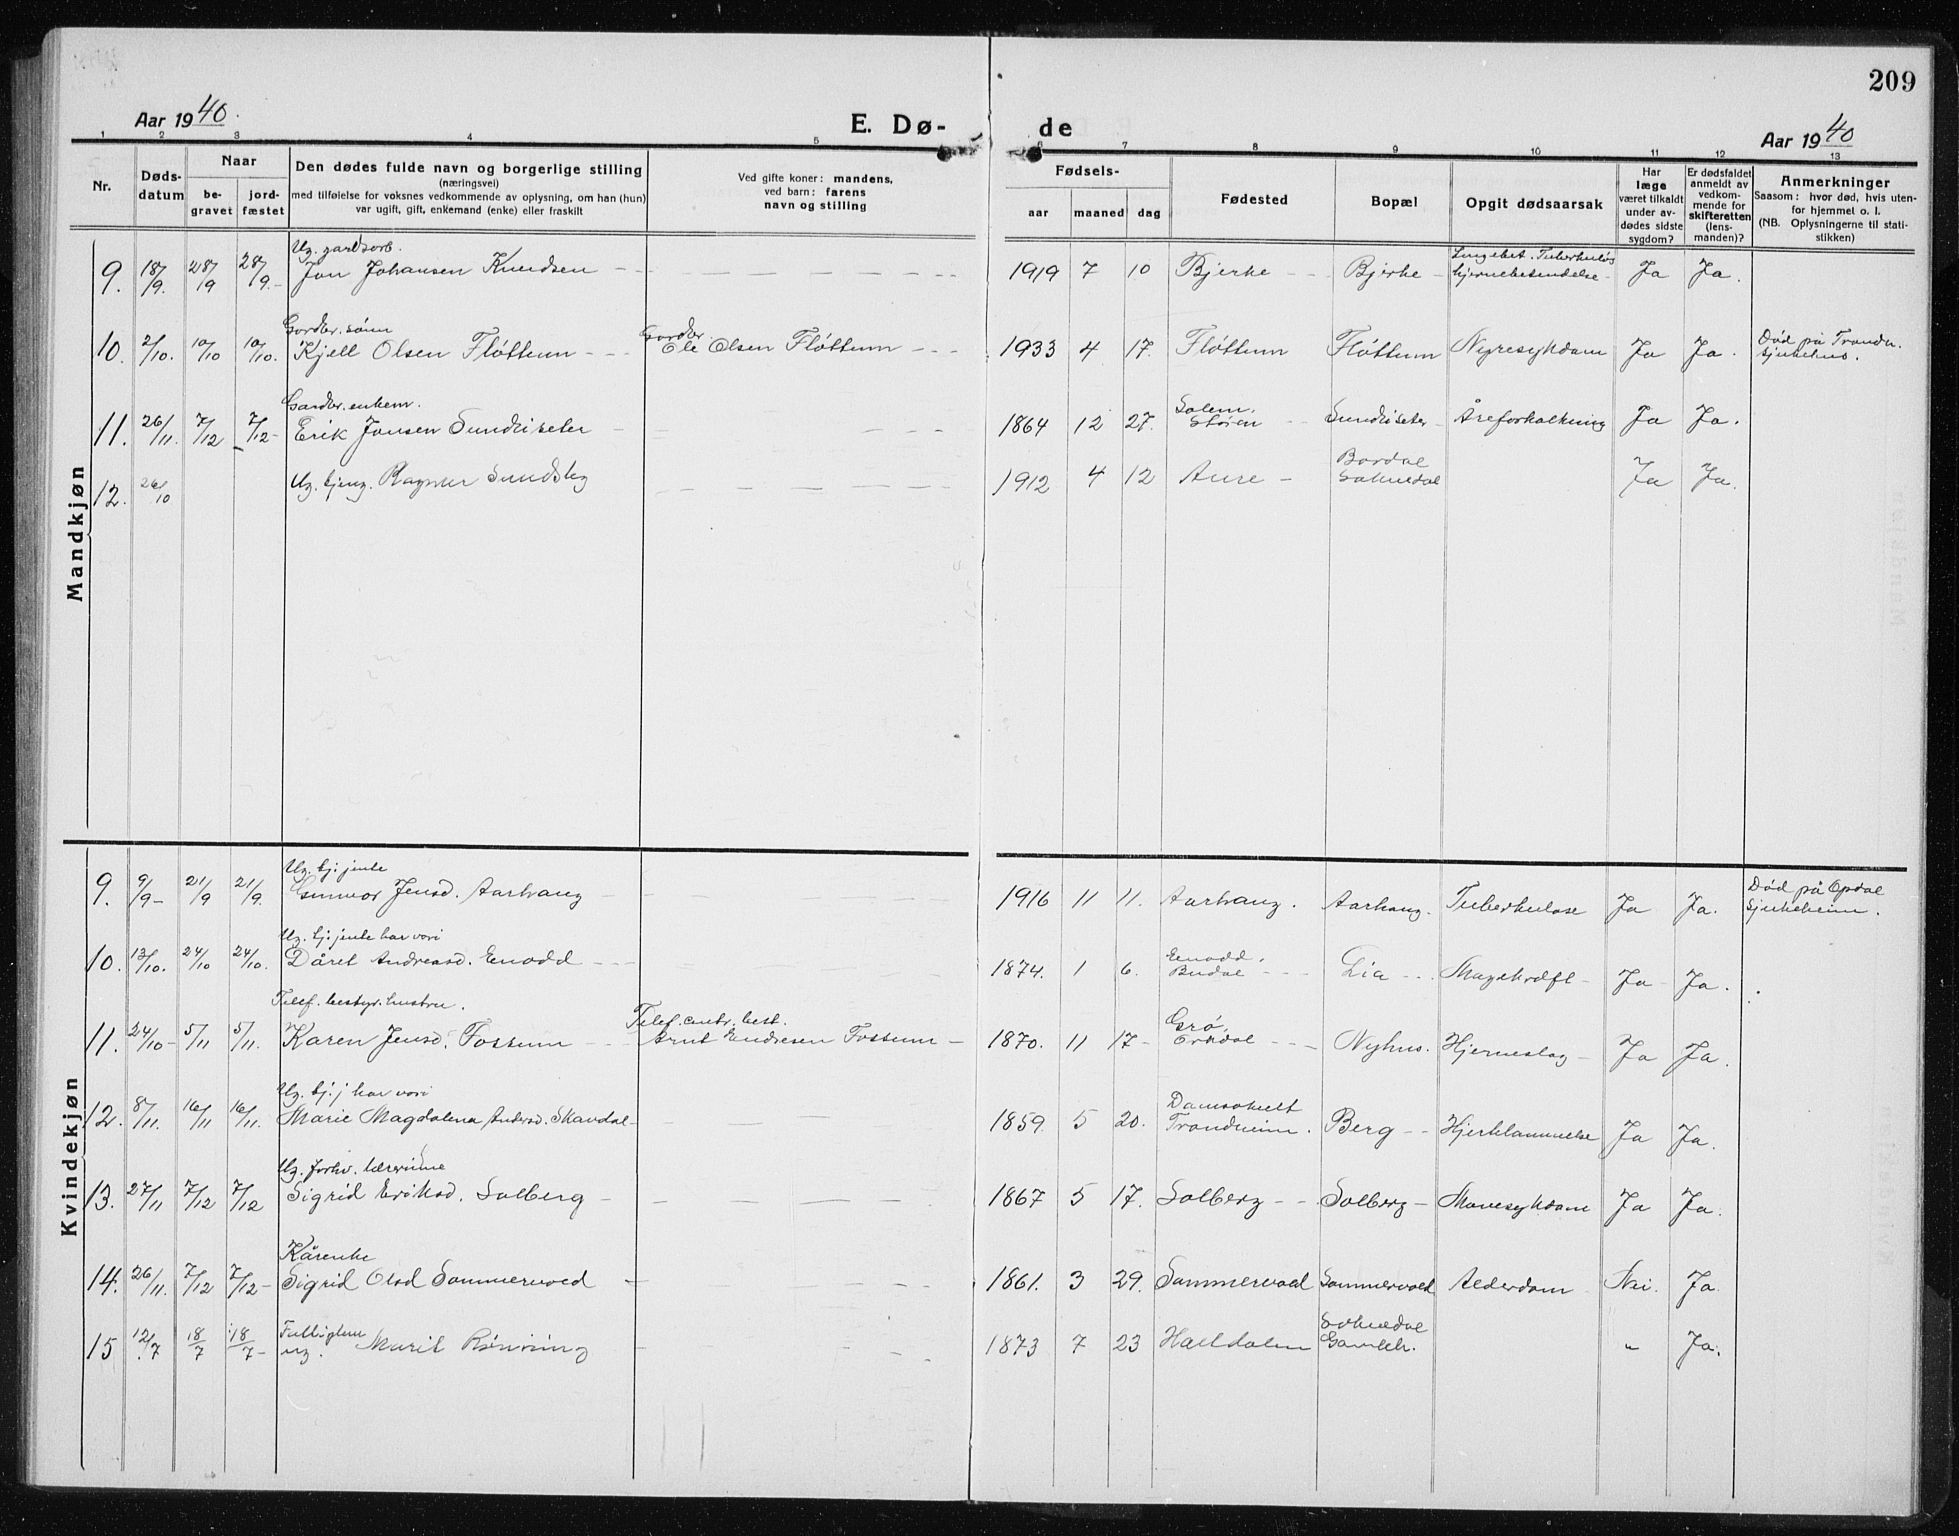 209
Aar 1940.
E. Dø-
de
Aar 1940
1 2 3 4 5 6 7 8 9 10 11 12 13
Nr.
Døds-
datum
Naar
be-
gravet
jord-
fæstet
Den dødes fulde navn og borgerlige stilling
(næringsvei)
med tilføielse for voksnes vedkommende av oplysning, om han (hun)
var ugift, gift, enkemand (enke) eller fraskilt
Ved gifte koner: mandens,
ved barn: farens
navn og stilling
Fødsels-
aar maaned dag
Fødested
Bopæl
Opgit dødsaarsak
Har
læge
været tilkaldt
under av-
dødes sidste
sygdom?
Er dødsfaldet
anmeldt av
vedkom-
mende for
skifteretten
(lens-
manden)?
Anmerkninger
Saasom: hvor død, hvis uten-
for hjemmet o. l.
(NB. Oplysningerne til stati-
stikken)
Mandkjøn
Ug. gardsarb.
9. 18/9. 28/9 28/9. Jon Johansen Knudsen 1919 7 10 Bjerke Bjerke hjernebetendelse Ja Ja.
Gardbr. sønn
Gardbr.
10. 2/10. 10/10 10/10. Kjell Olsen Fløttum Ole Olsen Fløttum 1933 4 17. Fløttum Fløttum Nyresykdom Ja Ja.
Død på Trondh.
sjukehus.
Gardbr. enkem.
11. 26/11. 7/12 7/12 Erik Jonsen Sundliseter 1864 12 27. Solem, Støren Sundliseter Åreforkalkning Ja Ja.
12. 26/10 Ug. Ragnar Sundsby 1912 4 12 Aure Bordal Soknedal Ja Ja.
Kvindekjøn
Ug. tj: jente
9. 9/9 21/9 21/9. Gunvor Jensd. Aarhaug 1916 11 11. Aarhaug. Aarhaug. Tuberkulose Ja Ja.
Død på Opdal
sjukeheim.
Ug. tj: jente har vori
10. 13/10. 24/10 24/10. Dåret Andreasd. Enodd 1874. 1 6. Enodd, Budal Lia Magekræft Ja Ja.
Telef. bestyr. hustru.
Telef. centr. best.
11. 24/10 5/11 5/11. Karen Jensd. Fossum Arnt Endresen Fossum 1870. 11 17 Grø, Orkdal Nyhus. Hjerneslag Ja Ja.
Ug. tj: j har vori
12. 8/11. 16/11 16/11. Marie Magdalena Andersd. Skavdal 1859. 5 20. Trondheim. Berg Hjertelammelse Ja Ja.
Ug. forhv. lærerinne
13. 27/11 7/12 7/12 Sigrid Eriksd. Solberg 1867 5 17. Solberg Solberg Mavesykdom Ja Ja.
Kårenke
14. 26/11. 7/12 7/12 Sigrid Olsd Sommervold 1861. 3 29. Sommervold Sommervold Alderdom Nei. Ja.
15 12/7 18/7 18/7 ug. Marit Rønning 1873 7 23 Halldalen Soknedal Gamleh. „ Ja.